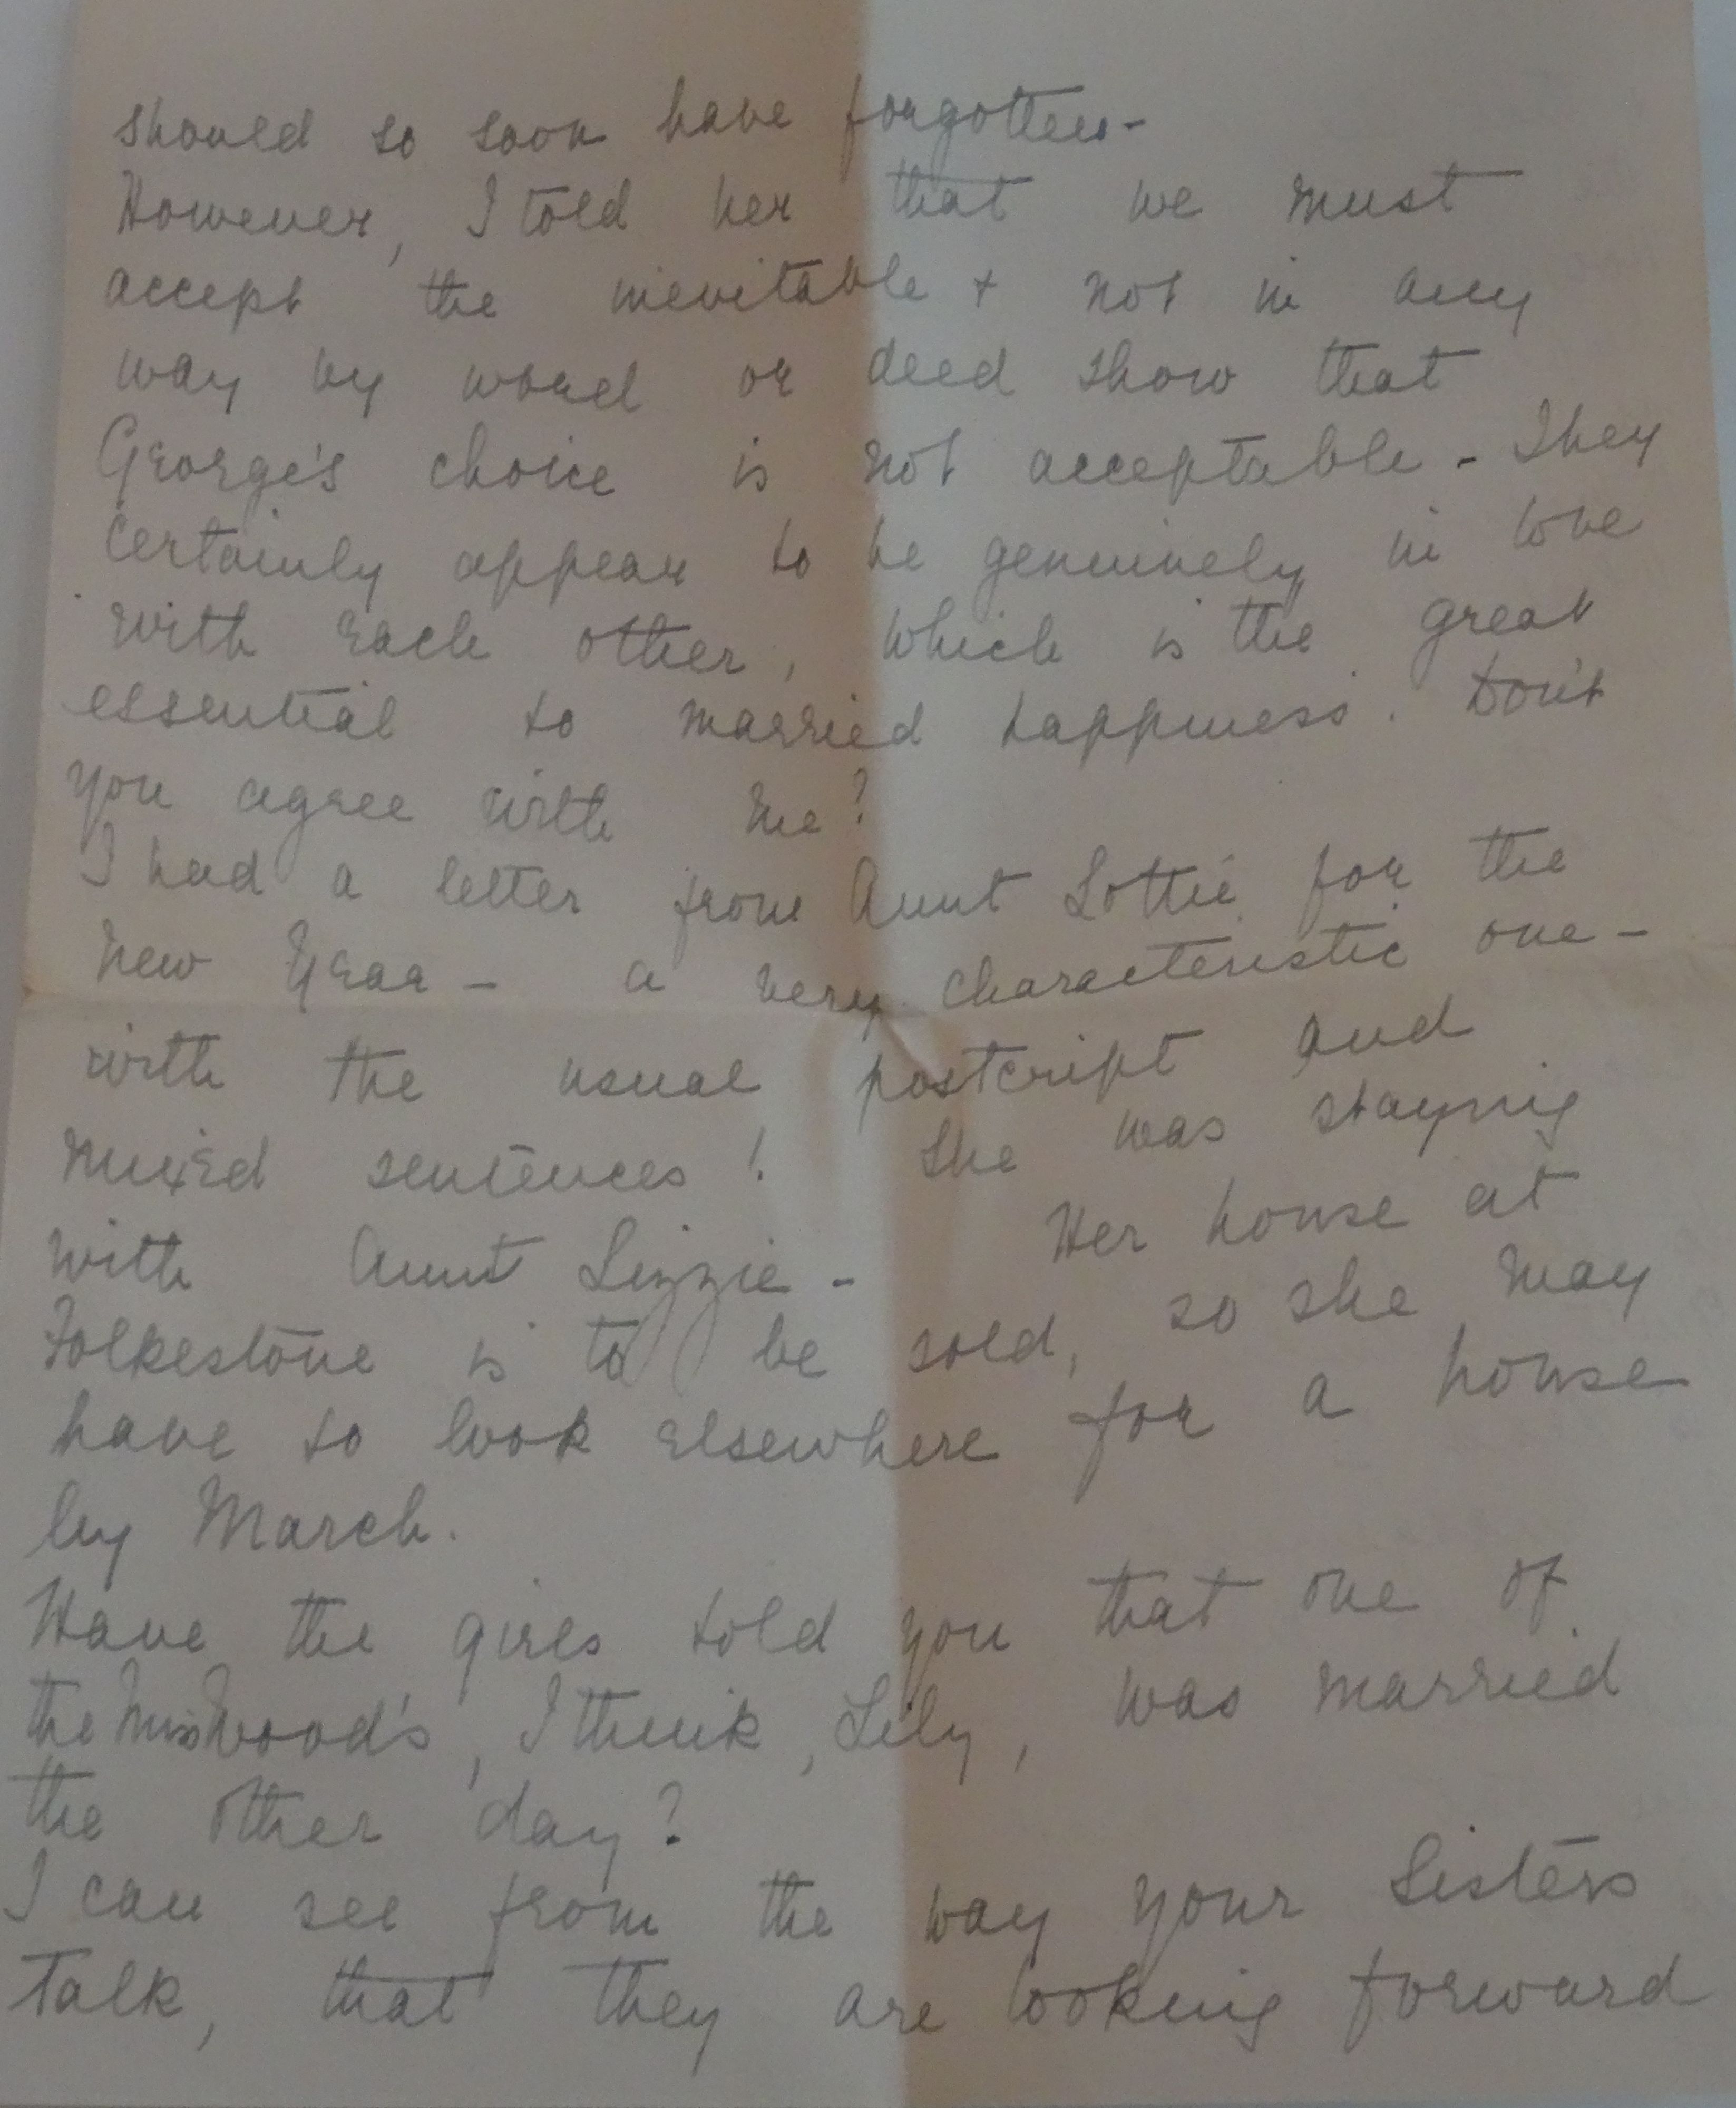 should so soon have forgotten-
However, I told her that we must
accept the inevitable + not in any
way by word or deed show that
George's choice is not acceptable - They
certainly appear to be genuinely in love
with each other, which is the great
essential to married happiness. Don't
you agree with me?
I had a letter from Aunt Lottie for the
New Year - a very characteristic one -
with the usual postcript and
mixed sentences! She was staying
with Aunt Lizzie - Her house at
Folkestone is to be sold, so she may
have to look elsewhere for a house
by March.
Have the girls told you that one of
the Miss Wood's, I think, Lily, was married
the other day?
I can see from the way your Sisters
Talk, that they are looking forward